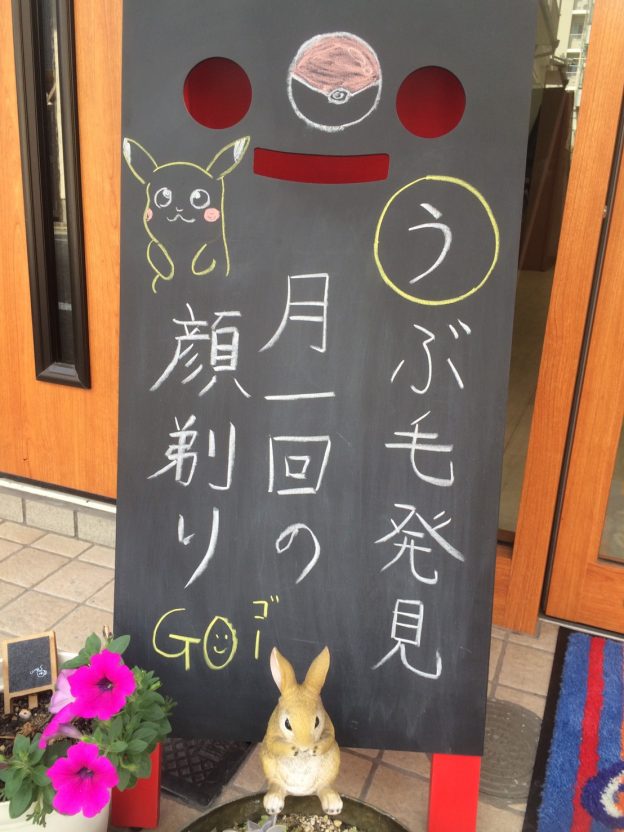 うぶ毛発見
月一回の
顔剃り
GO ゴー